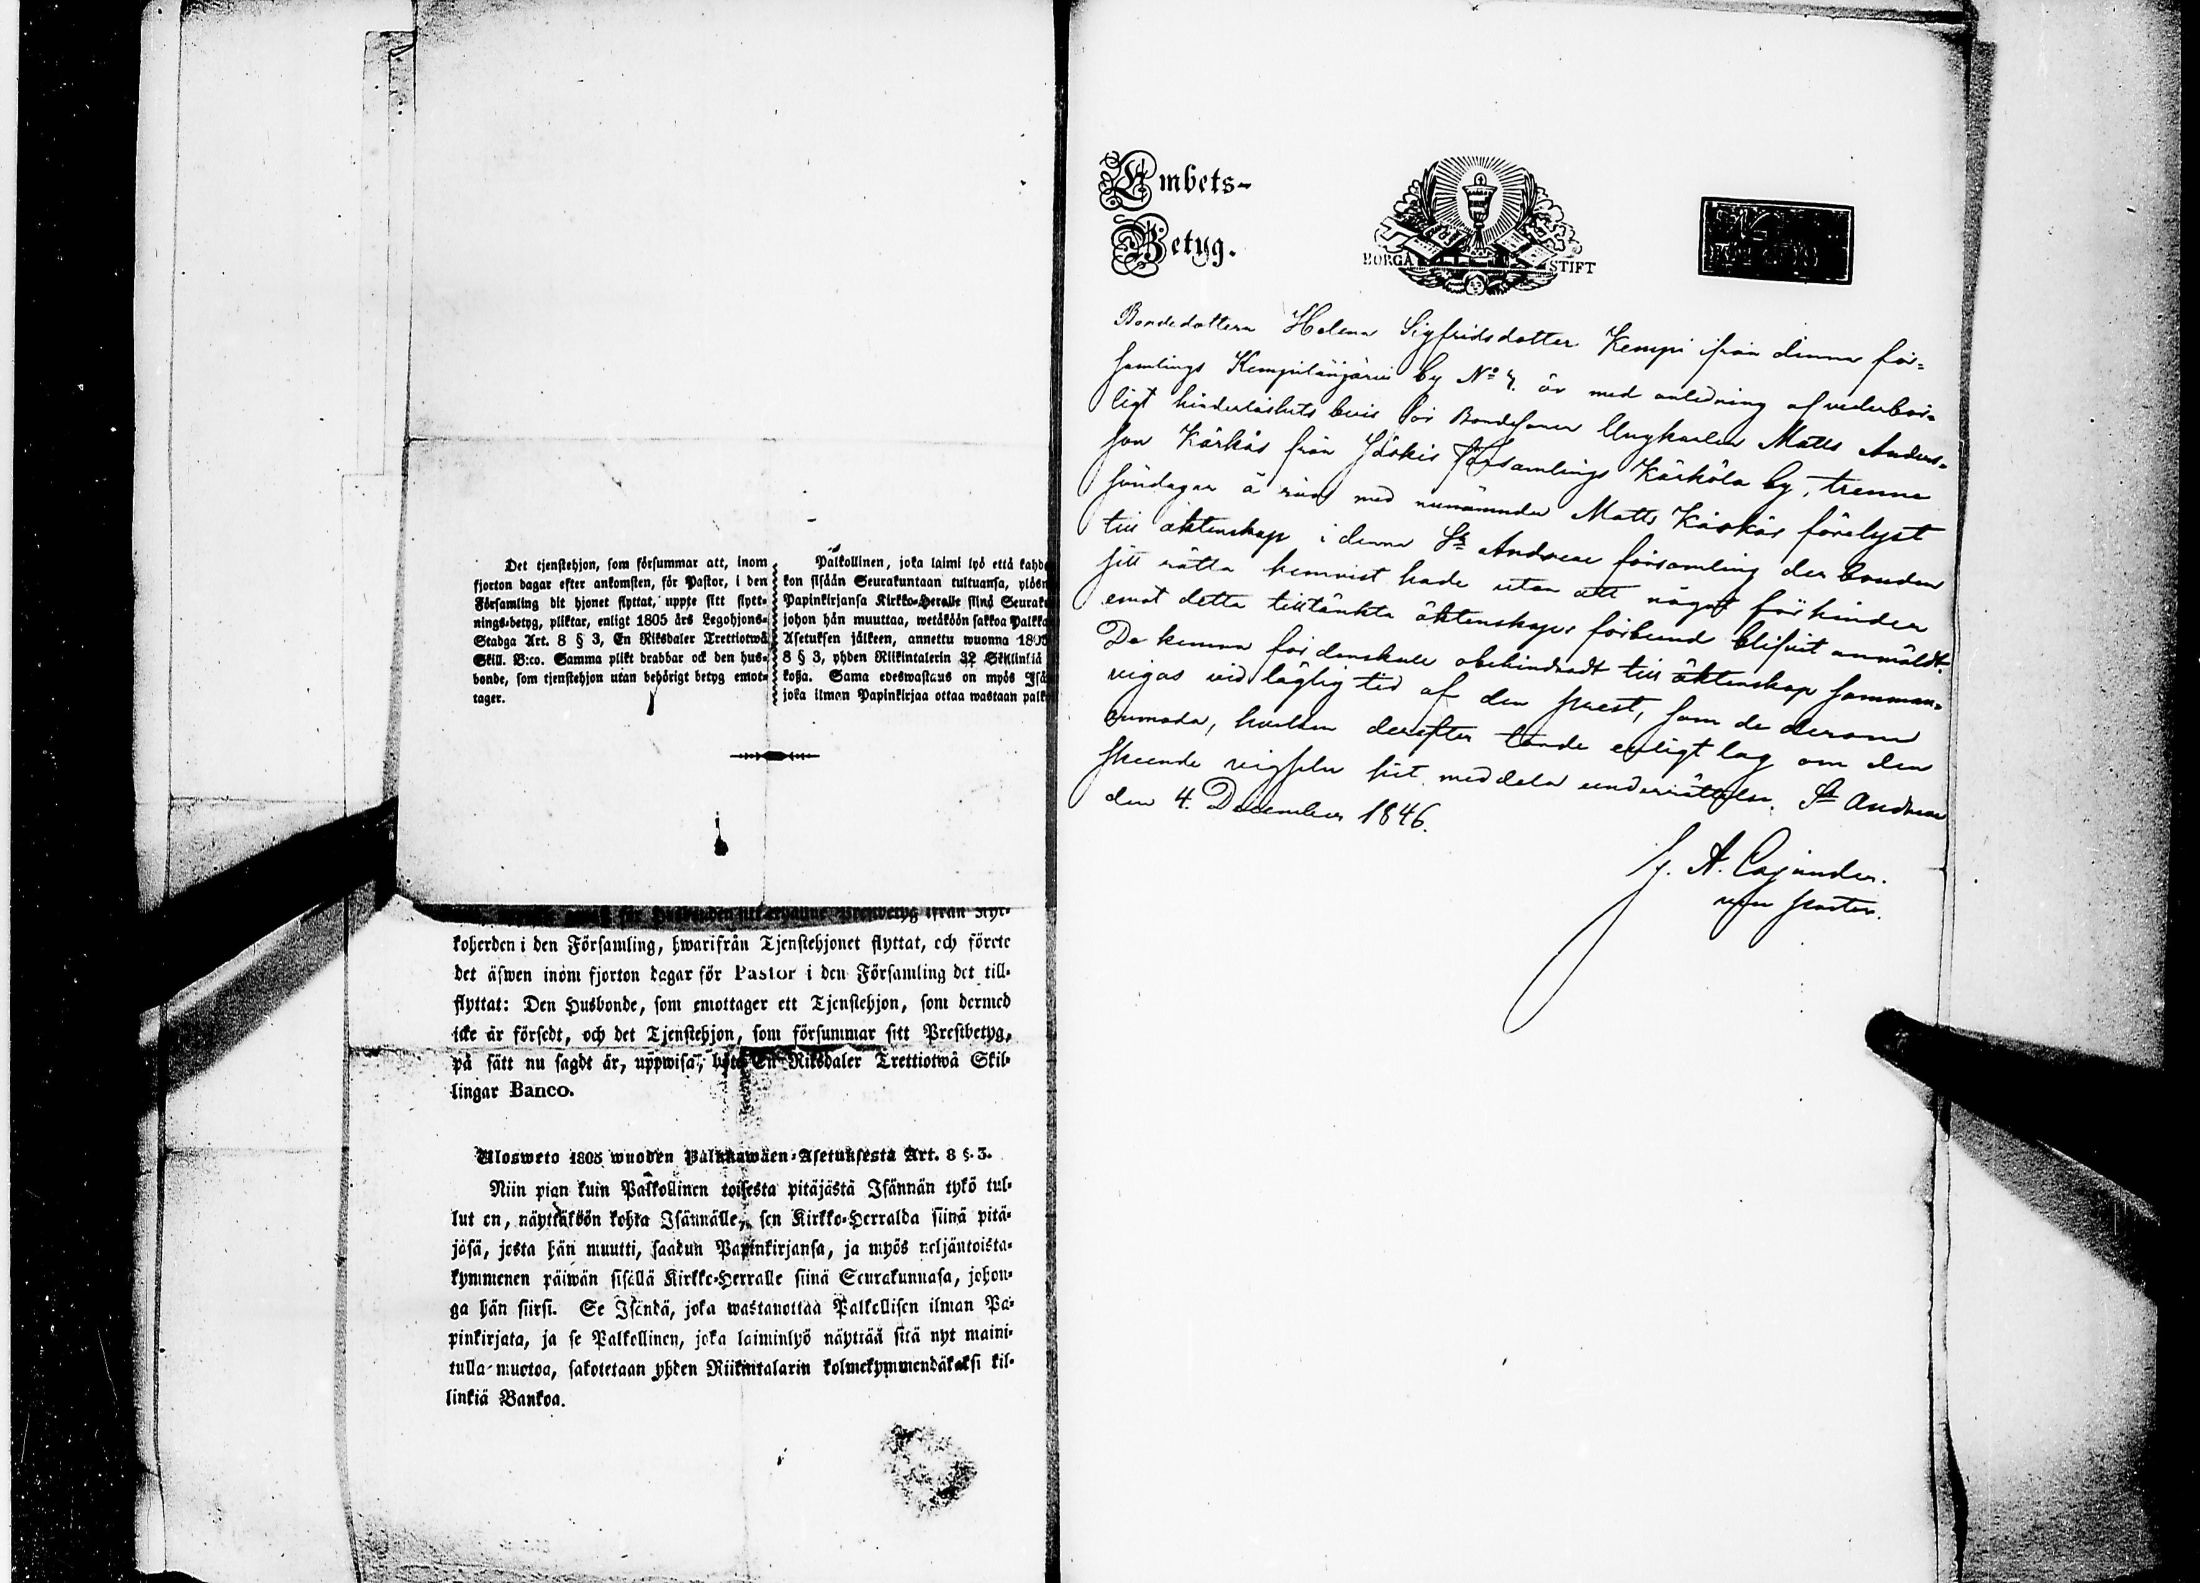 Det tjenstehjon, som försummar att, inom
fjorton dagar efter ankomsten, för Pastor, i den
Församling dit hjonet flyttat, uppte sitt flytt-
nings-betyg, pliktar, enligt 1805 års Legohjons-
Stadga Art. 8 § 3, En Riksdaler Trettiotwå
Skill. B:co. Samma plikt drabbar ock den hus-
bonde, som tjenstehjon utan behörigt betyg emot-
tager.
Palkollinen, joka laimi lyö että kahde
kon sisään Seurakuntaan tultuansa, ylösn
Papinkirjansa Kirkko-Heralle siinä Seurak
johon hän muuttaa, wetäköön sakkoa Palkka
Asetuksen jälkeen, annettu wuonna 1805
8 § 3, yhden Riikintalerin 32 Skillinkiä
koßa. Sama edeswastaus on myös Isä
joka ilman Papinkirjaa ottaa wastaan palk
för Husbonden sitt erhållne Prestbetyg ifrån Kyr-
koherden i den Församling, hwarifrån Tjenstehjonet flyttat, och förete
det äfwen inom fjorton dagar för Pastor i den Församling det till-
flyttat: Den Husbonde, som emottager ett Tjenstehjon, som dermed
icke är försedt, och det Tjenstehjon, som försummar sitt Prestbetyg,
på sätt nu sagdt är, uppwisa, böte En Riksdaler Trettiotwå Skil-
lingar Banco.
Ulosweto 1805 wuoden Palkkawäen-Asetuksesta Art. 8 §. 3.
Niin pian kuin Palkollinen toisesta pitäjästä Isännän tykö tul-
lut on, näyttäköön kohta Isännälle, sen Kirkko-Herralda siinä pitä-
jäsä, josta hän muutti, saadun Papinkirjansa, ja myös neljäntoista-
kymmenen päiwän sisällä Kirkko-Herralle siinä Seurakunnasa, johon-
ga hän siirsi. Se Isändä, joka wastanottaa Palkollisen ilman Pa-
pinkirjata, ja se Palkollinen, joka laiminlyö näyttää sitä nyt maini-
tulla muotoa, sakotetaan yhden Riikintalarin kolmekymmendäkaksi kil-
linkiä Bankoa.
Embets-
Betyg.
BORGÅ STIFT
Bondedottern Helena Sigfridsdotter Kempi från denna för-
samlings Kempilänjärvi by No 7. är med anledning af vederbör-
ligt hinderlöshets bevis för Bondesonen Ungkarlen Matts Anders-
son Kärkäs från Jäskis församlings Kärkölä by, trenne
söndagar å rad med nunämnde Matts Kärkäs förelyst
till äktenskap i denna St Andreae församling der bruden
sitt rätta hemvist hade utan att något förhinder
emot detta tilltänkta äktenskaps förbund blifvit anmäldt.
De kunna fördenskull obehindradt till äktenskap samman-
vigas vid läglig tid af den prest, som de derom
anmoda, hvilken derefter torde enligt lag om den
skeende vigseln hit meddela underrättelse. St Andreae
den 4. December 1846.
J. A. Cajander.
Pastor.